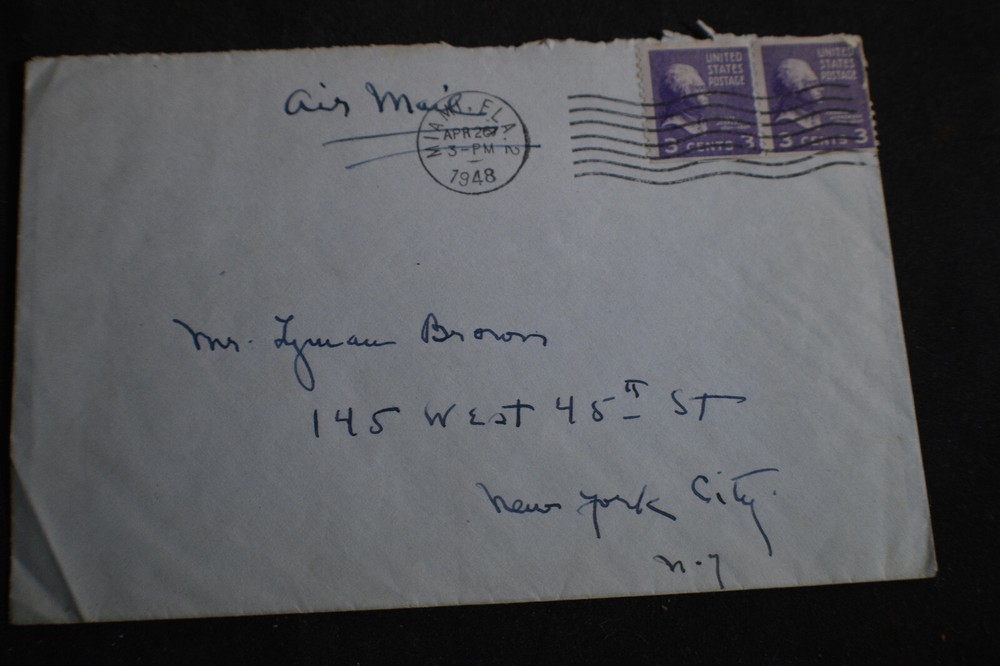 Air Mail.
MIAMI, FLA. 2
APR 26
3-PM
1948
UNITED
STATES
POSTAGE
3 CENTS 3
UNITED
STATES
POSTAGE
3 CENTS 3
Mr. Lyman Brown
145 West 45th ST
New York City.
N.Y